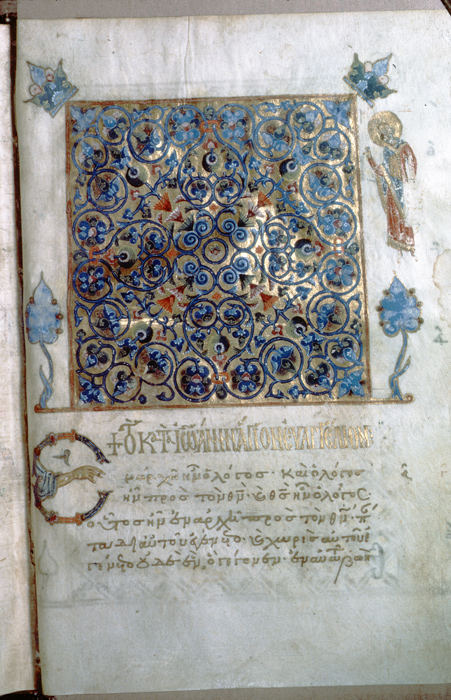 + ΤΟ ΚΑΤΑ ΙΩΑΝΝΗΝ ΑΓΙΟΝ ΕΥΑΓΓΕΛΙΟΝ
Ἐν ἀρχῇ ἦν ὁ λόγος· καὶ ὁ λόγος
ἦν πρὸς τὸν θν· καὶ θς ἦν ὁ λόγος·
οὗτος ἦν ἐν ἀρχῇ πρὸς τὸν θν· πά
τα δι αὐτοῦ ἐγένετο· καὶ χωρὶς αὐτοῦ ἐ
γένετο οὐδὲ ἕν, ὃ γέγονεν· ἐν αὐτῷ ζωὴ